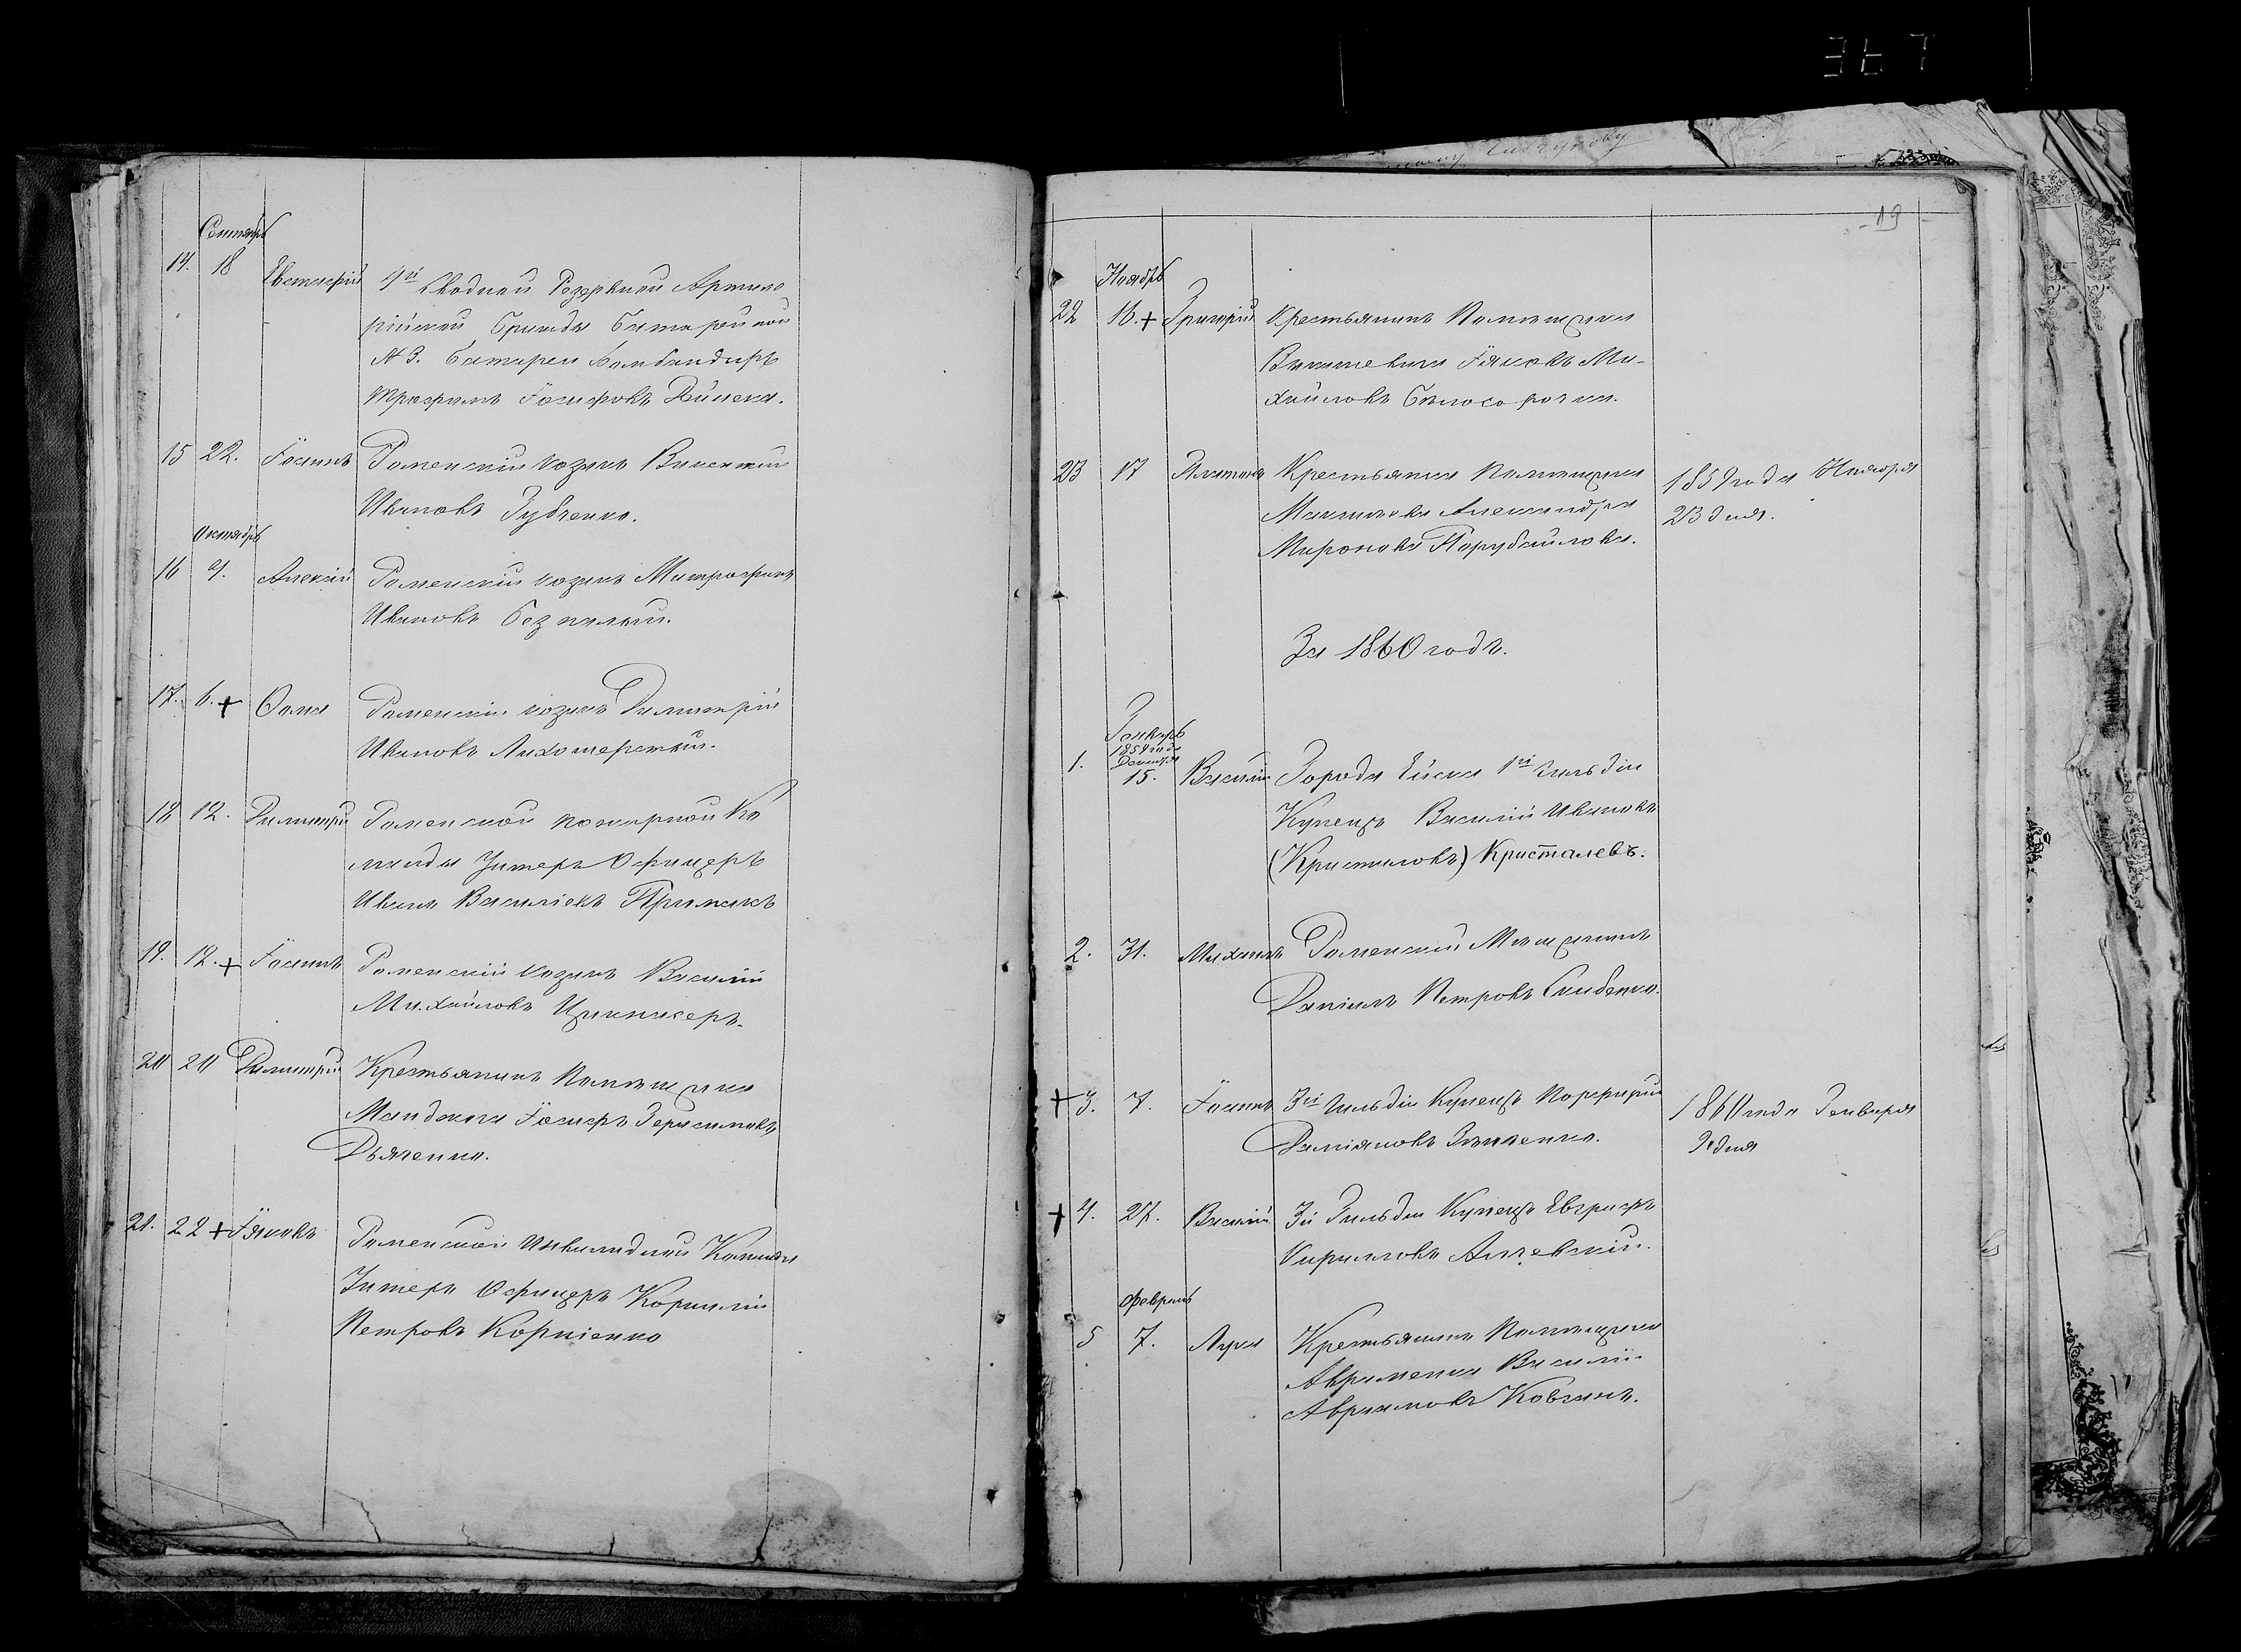 Сентябрь
14. 18 Евстафій 1й Сводной Резервной Артиле
рійской Бригады Батарейной
№ 3. Батареи Бомбандиръ
Трофимъ Іосифовъ
15 22. Іоаннъ Роменскій козакъ Викентій
Ивановъ Зубченко.
Октябрь
16 4. Алексій Роменскій козакъ Митрофанъ
Ивановъ Безпалый.
17. 6. + Ѳома Роменскій козакъ Димитрій
Ивановъ Лихошерстый.
18 12. Димитрій Роменской пожарной Ко
манды Унтеръ Офицеръ
Иванъ Василіевъ Примакъ
19. 12. + Іоаннъ Роменскій козакъ Василій
Михайловъ
20 20 Димитрій Крестьянинъ Помѣщика
Іосифъ Герасимовъ
Дьяченко.
21. 22 + Іяковъ Роменской Инвалидной Команды
Унтеръ Офицеръ Корнилій
Петровъ Корніенко
19
Ноябрь
22 16. + Григорій Крестьянинъ Помѣщика
Іяковъ Ми-
хайловъ Бѣлосорочка.
23 17 Платонъ Крестьянка Помѣщика
Александра
Миронова Порубайлова.
1859 года Ноября
23 дня.
За 1860 годъ.
Генварь
1859 года
Декабря
1. 15. Василій Города Ейска 1й гильдіи
Купецъ Василій Ивановъ
(Кристаловъ) Кристалевъ.
2. 31. Михаилъ Роменскій Мѣщанинъ
Даніилъ Петровъ Скибенко.
+ 3. 7. Іоаннъ 3й гильдіи Купецъ Порфирій
Даміяновъ
1860 года Генваря
9 дня
+ 4. 27. Василій 3й Гильдіи Купецъ Евграфъ
Кирилловъ Алчевскій.
Февраль
5 7. Лука Крестьянинъ Помѣщика
Авраменка Василій
Аврамовъ Ковганъ.